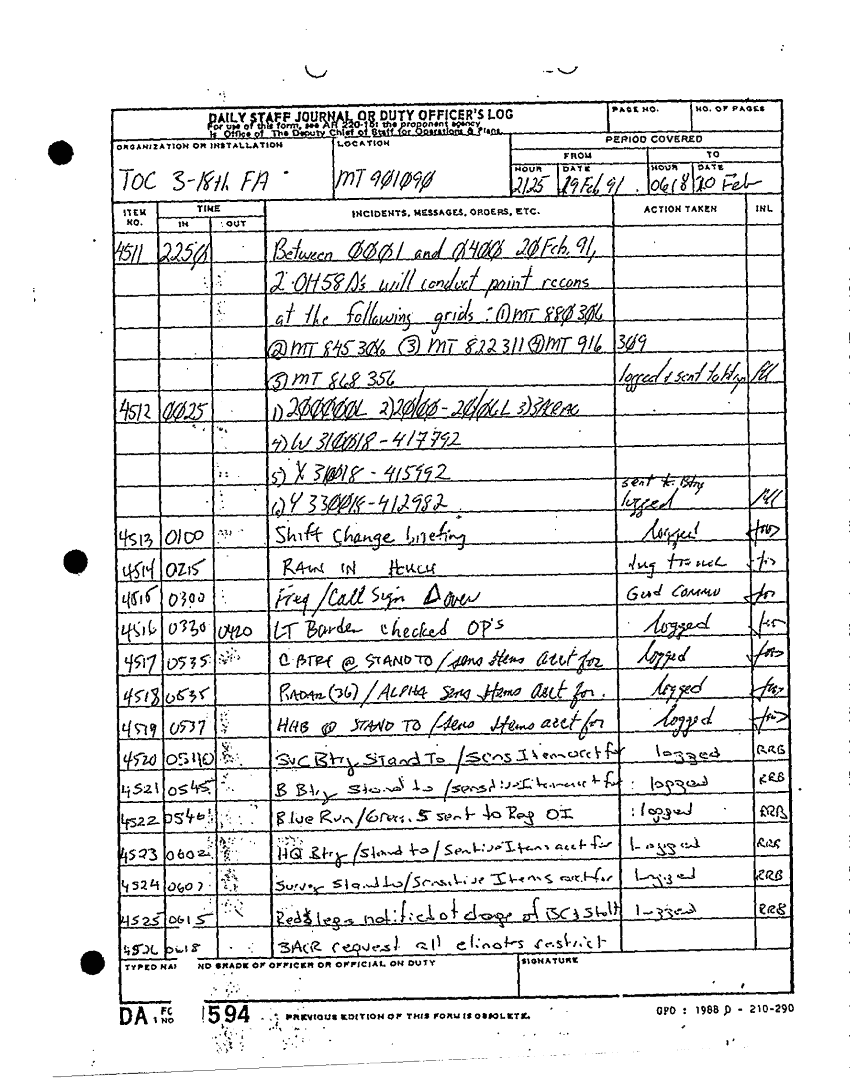 DAILY STAFF JOURNAL OR DUTY OFFICER'S LOG
For use of this form, see AR 220-15; the proponent agency
is Office of The Deputy Chief of Staff for Operations & Plans.
PAGE NO.
NO. OF PAGES
ORGANIZATION OR INSTALLATION
TOC 3-18th FA
LOCATION
MT 901090
PERIOD COVERED
FROM
TO
HOUR
DATE
HOUR
DATE
2125
19 Feb 91
0618
20 Feb
ITEM NO.
TIME
IN
OUT
INCIDENTS, MESSAGES, ORDERS, ETC.
ACTION TAKEN
INL
4511 2250 Between 0001 and 0400 20 Feb. 91,
2 OH58D's will conduct point recons
at the following grids: (1) MT 880306
(2) MT 845306 (3) MT 822311 (4) MT 916 309
(5) MT 868 356 logged & sent to btrys
4512 0025 1) 200000L 2) 200100-200106L 3) 3ACRAC
4) W 310018-417792
5) X 310018-415992
sent to Btry
6) Y 330018-412982 logged
4513 0100 Shift Change briefing logged
4514 0215 RAIN IN dug trench
4515 0300 Freq/Call Sign Δ over Good Commo
4516 0330 0420 LT Borden checked OP's logged
4517 0535 C BTRY @ STAND TO/sens Items acct for logged
4518 0535 RADAR (26)/ALPHA Sens Items Acct for. logged
4519 0537 HHB @ STAND TO/sens Items acct for logged
4520 0540 SVC Btry Stand To/Sens Item acct for logged RRB
4521 0545 B Btry Stand to/sensitive Item acct for logged RRB
4522 0546 Blue Run/Green 5 sent to Reg OI logged RRB
4523 0602 HQ Btry/Stand to/Sensitive Items acct for Logged RRB
4524 0607 Survey Stand to/Sensitive Items acct for Logged RRB
4525 0615 Redlegs notified of change of Logged RRB
4526 0618 3ACR request all restrict
TYPED NA ND GRADE OF OFFICER OR OFFICIAL ON DUTY
SIGNATURE
DA 1594
PREVIOUS EDITION OF THIS FORM IS OBSOLETE.
GPO : 1988 O - 210-290